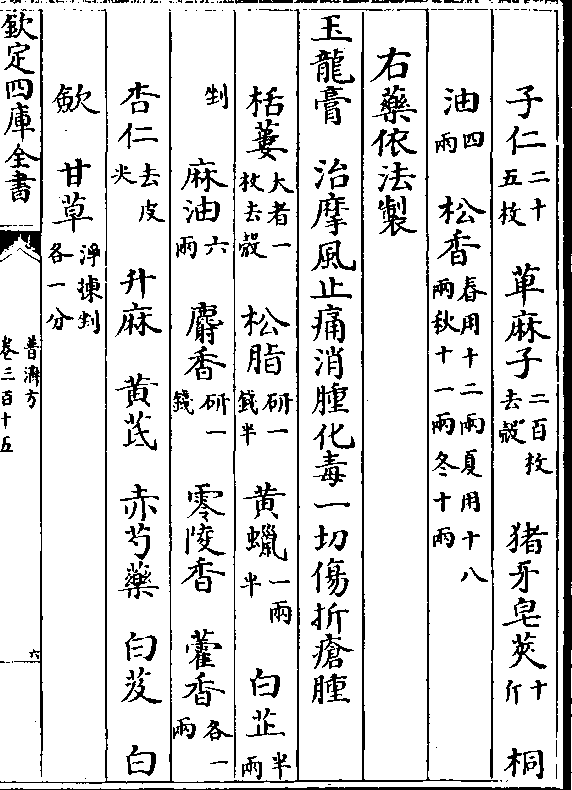 子仁二十五枚 草麻子二百枚去殼 猪牙皂莢十斤 桐
油四兩 松香春用十二兩夏用十八兩秋十一兩冬十兩
右藥依法製
玉龍膏 治摩風止痛消腫化毒一切傷折瘡腫
栝蔞大者一枚去殼 松脂研一錢半 黄蠟一兩半 白芷半兩
剉 麻油六兩 麝香研一錢 零陵香 藿香各一兩
杏仁去皮尖 升麻 黄芪 赤芍藥 白芨 白
歛 甘草淨揀剉各一分
欽定四庫全書
普濟方
卷三百十五
六